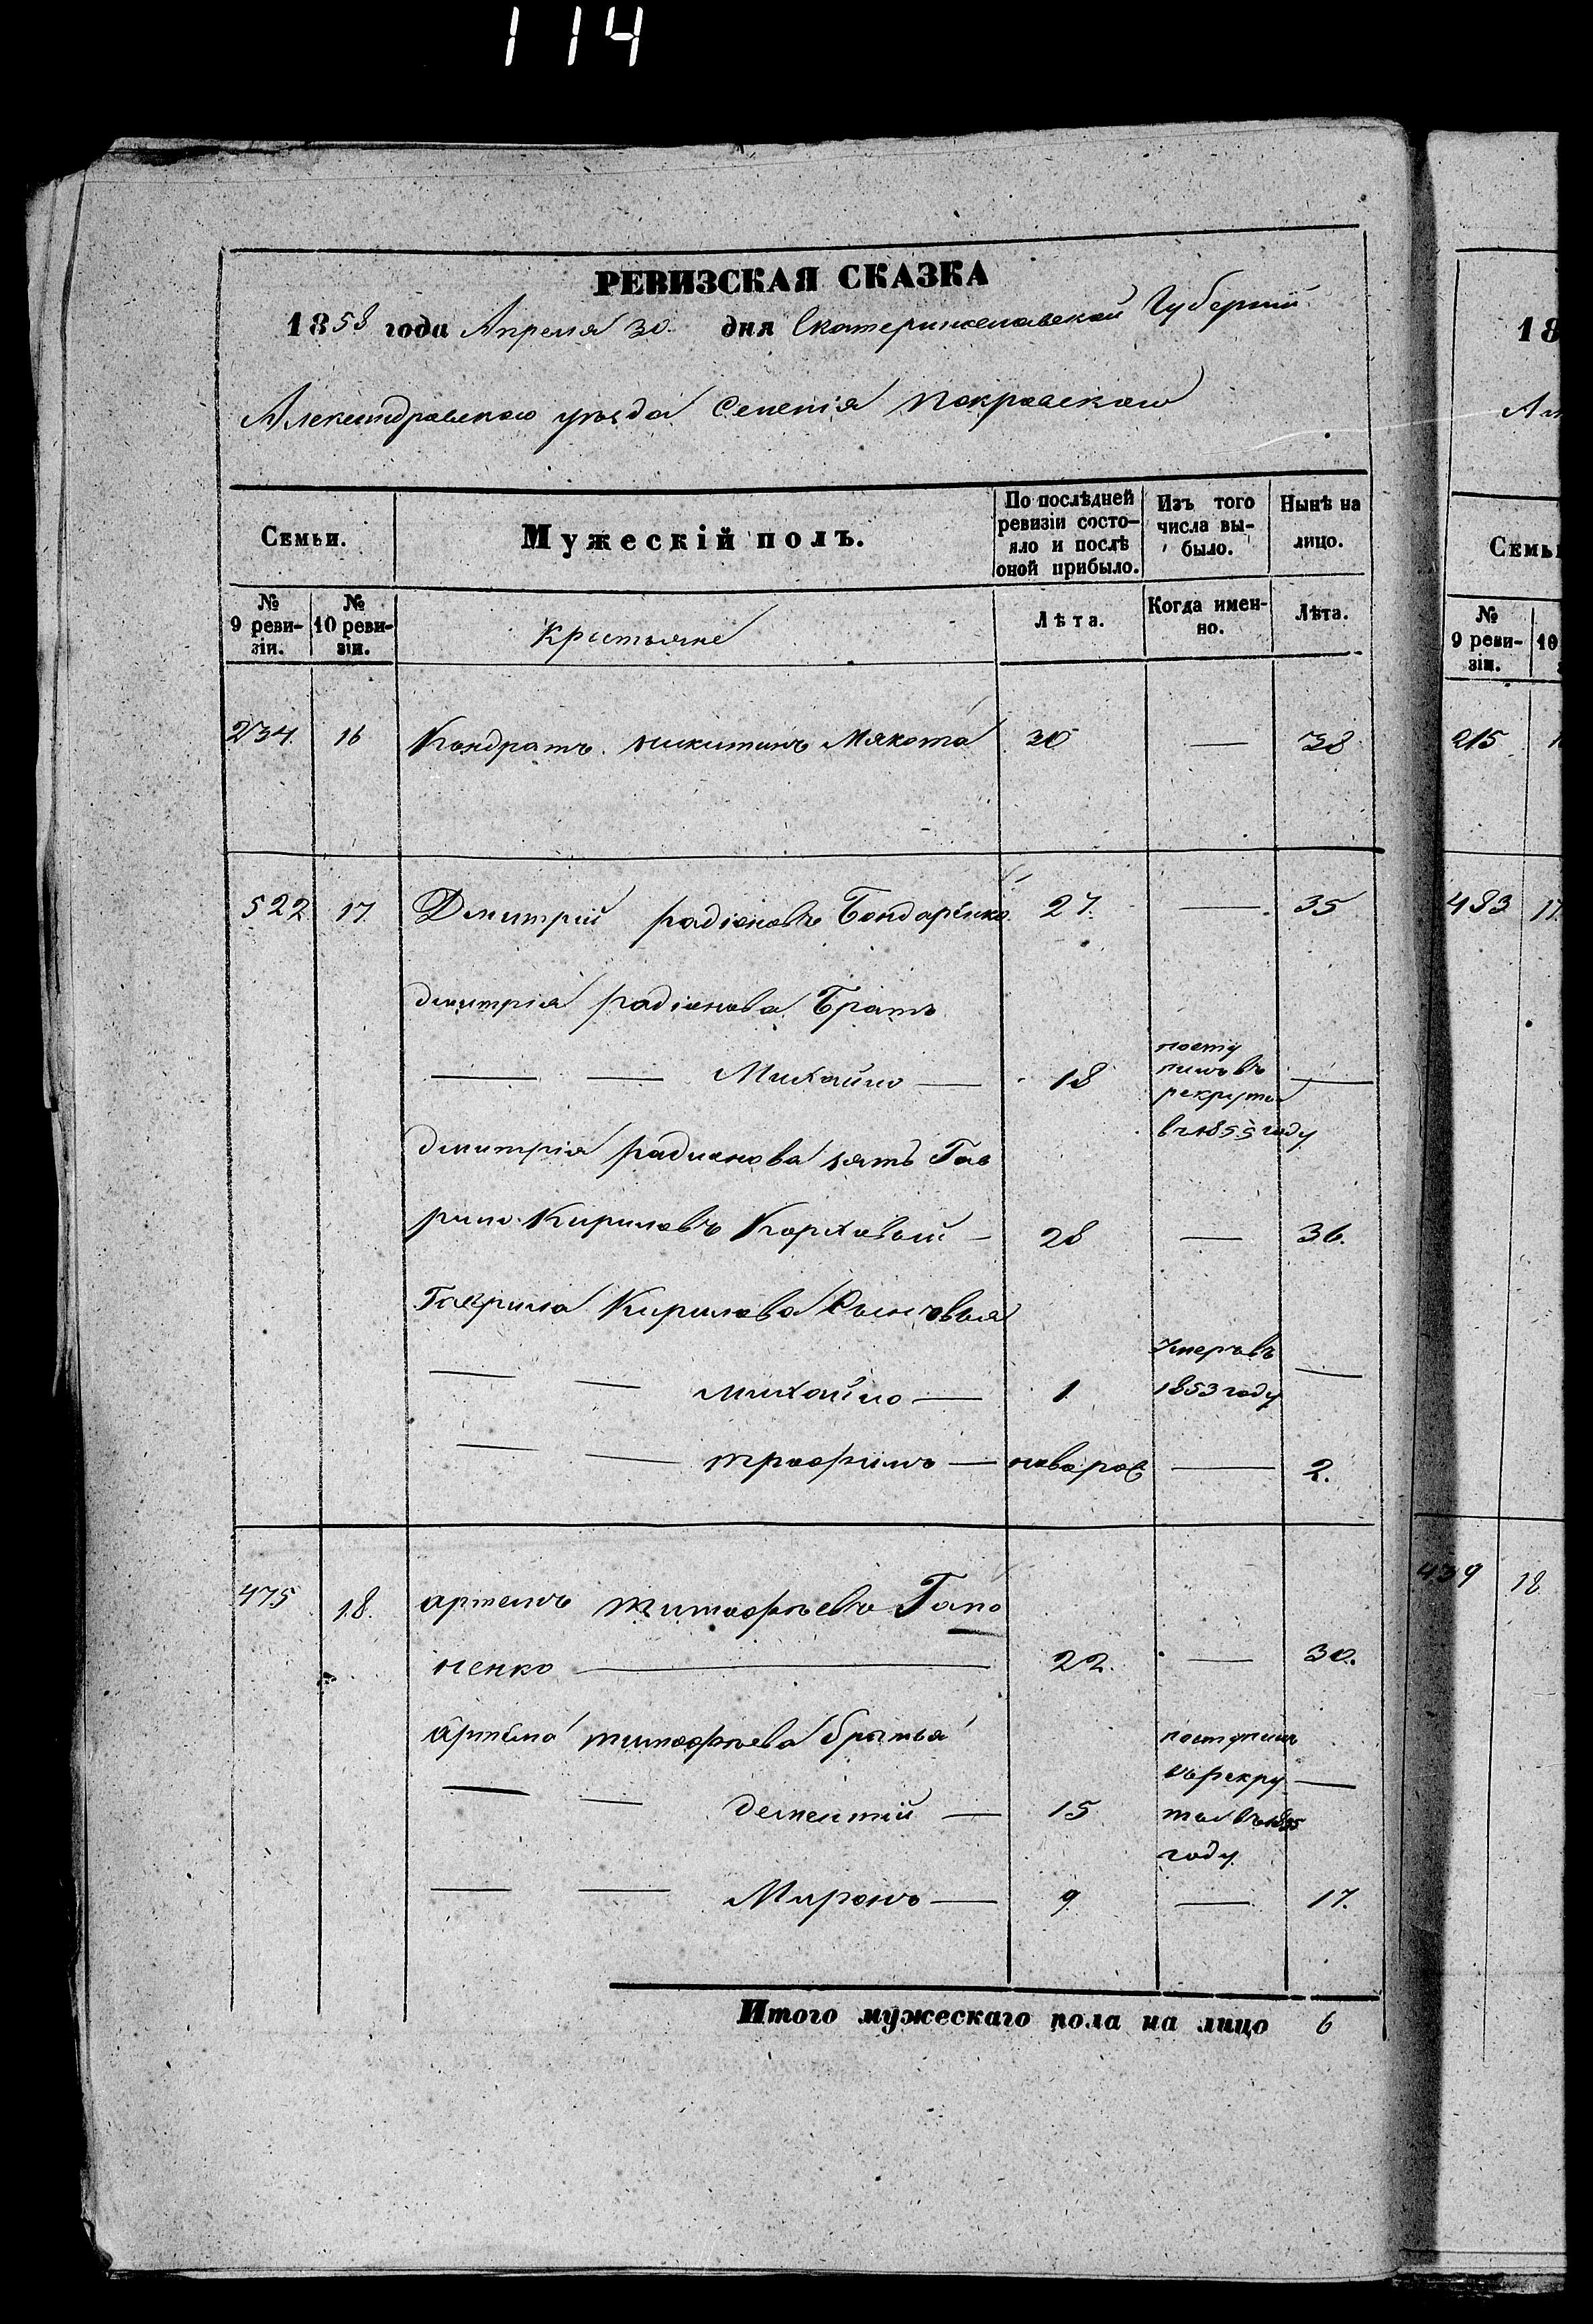 114
РЕВИЗСКАЯ СКАЗКА
1858 года Апреля 30 дня Екатеринославской Губерніи
Александровского уѣзда Селенія Покровского
Семьи.
Мужескій полъ.
По послѣдней ревизіи состо-
яло и послѣ оной прибыло.
Изъ того числа вы-
было.
Нынѣ на лицо.
№ 9 реви-
зіи.
№ 10 реви-
зіи.
Крестьяне
Лѣта.
Когда имен-
но.
Лѣта.
234. 16 Кондратъ никитинъ Мякота 30 — 38
522 17 Дмитрій радіоновъ Бондаренко 27. — 35
дмитрія радіонова Братъ
— — Михайло — 18 посту
пилъ въ
рекруты
въ 1855 году —
дмитрія радионова зять Гав
рило Кириловъ Корховый — 28 — 36.
Гаврила Кирилова Сыновья
— — михайло — 1 Умеръ въ
1853 году —
— — трофимъ — новорож — 2.
475 18. артемъ тимофѣевъ Гапо
ненко — 22. — 30.
артема тимофѣева братья
— — дементій — 15 поступилъ
въ рекру
ты въ 1855
году —
— — Миронъ — 9 — 17.
Итого мужескаго пола на лицо 6
18
Ал
Семьи
№ 9 реви-
зіи.
10
215
483 17.
439 18